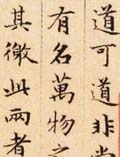 道可道非常
有名萬物之
其徼此兩者